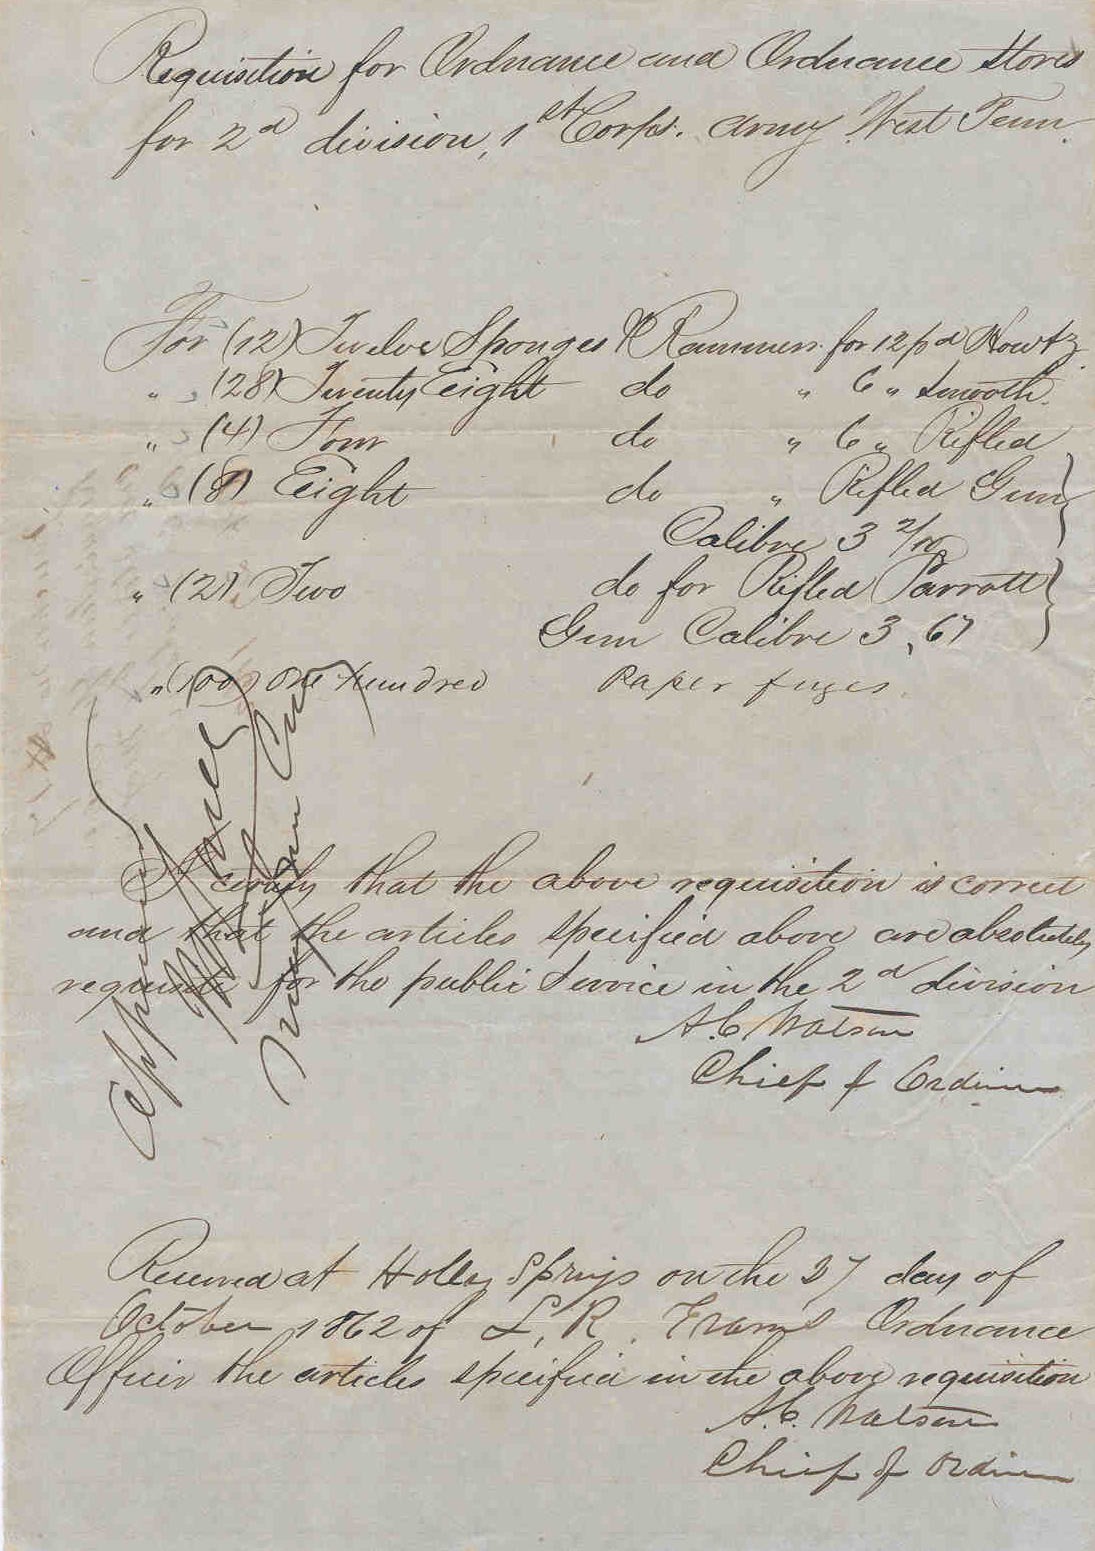 Requisition for Ordnance and Ordnance Stores
for 2d division, 1st Corps. Army West Tenn.
For (12) Twelve Sponges & Rammers for 12 pd Howtz
" (28) Twenty Eight do " 6 " Smooth.
" (4) Four do " 6 " Rifled
" (8) Eight do " Rifled Gun
Calibre 3 2/10
" (2) Two do for Rifled Parrott
Gun Calibre 3,67
" (100) One Hundred Paper fuzes.
Approved
I certify that the above requisition is correct
and that the articles specified above are absolutely
requisite for the public Service in the 2d division
A.C. Watson
Chief of Ordnance
Received at Holly Springs on the 27 day of
October 1862 of L, R. Evans Ordnance
Officer the articles specified in the above requisition
A.C. Watson
Chief of Ordnance